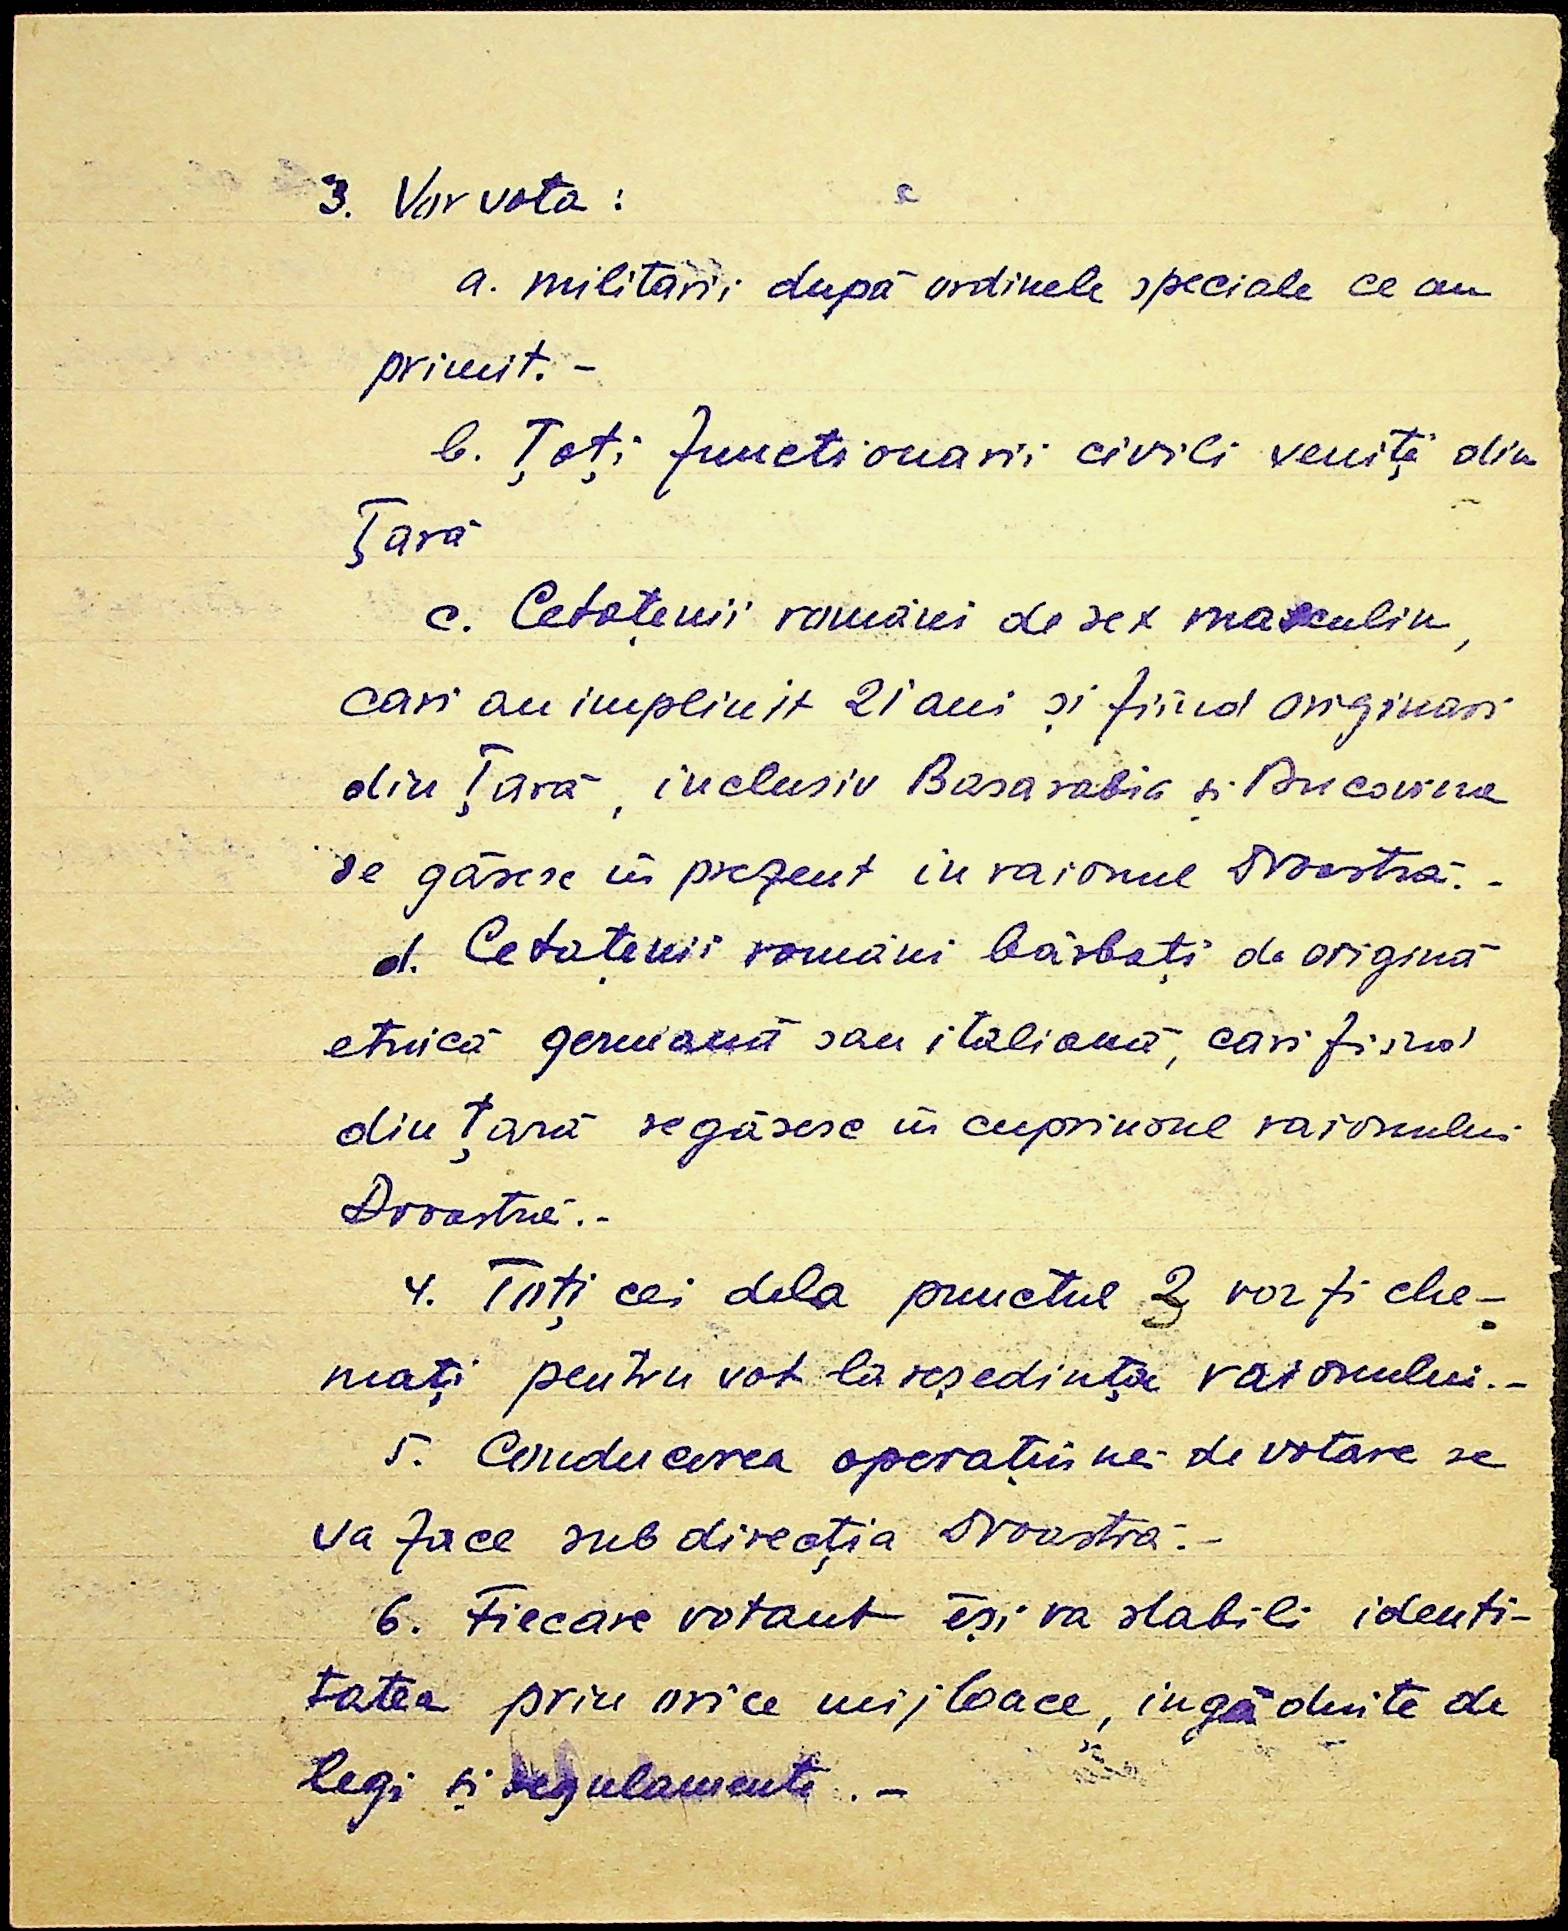 3. Vor vota :
a. militarii după ordinele speciale ce au
primit. -
b. Țoți functionarii civili veniți din
Țară
c. Cetațenii români de sex masculin,
cari au implinit 21 ani și fiind originari
din Țară, inclusiv Basarabia și Bucovina
se găsesc în prezent in raionul Dvoastră. -
d. Cetațenii români bărbați de origină
etnică germană sau italiană, cari fiind
din Țară se găsesc în cuprinsul raionului
Dvoastră. -
4. Toți cei dela punctul 3 vor fi che-
mați pentru vot la reședința raionului. -
5. Conducerea operațiunei de votare se
va face sub direcția Dvoastră. -
6. Fiecare votant își va stabili identi-
tatea prin orice mijloace, ingăduite de
legi și regulamente. -